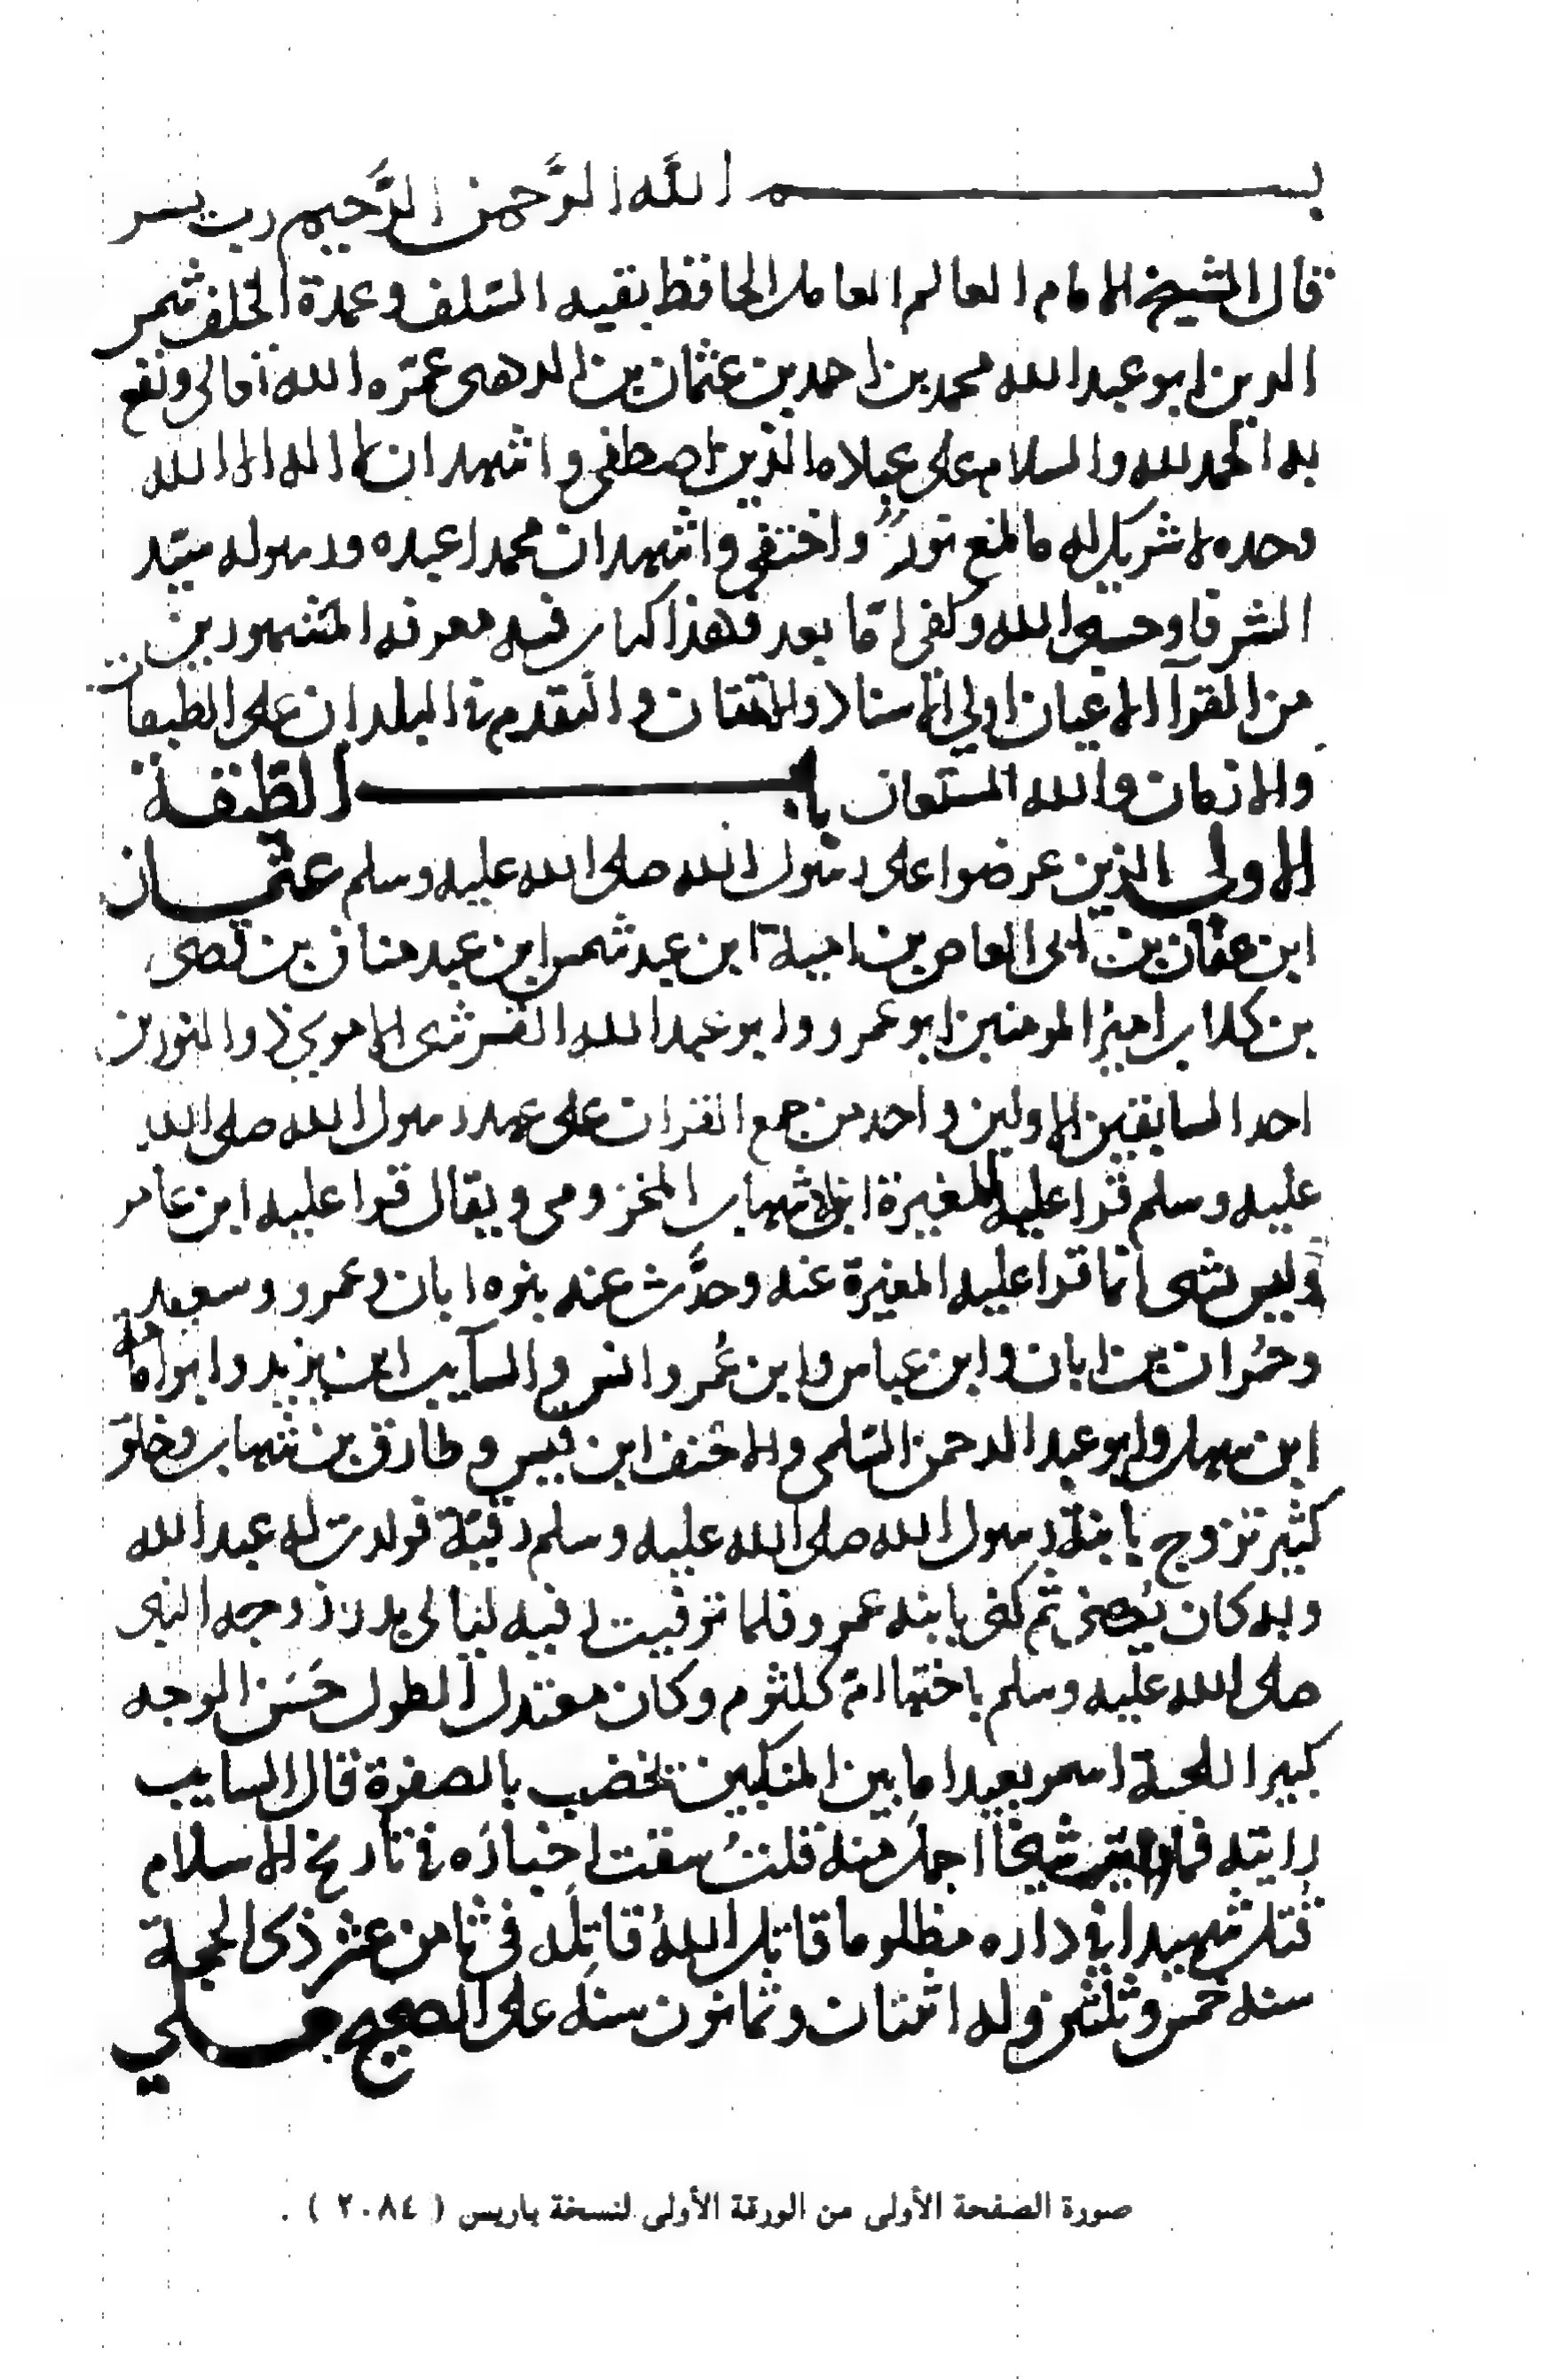 بسم الله الرَّحمن الرَّحيم رب يسر
قال الشيخ الامام العالم العامل الحافظ بقيه السّلف وعمدة الخلف شمس
الدين ابو عبد الله محمد بن احمد بن عثمان بن الذهبى عمّره الله تعالى ونفع
به الحمد لله والسلام على عباده الذين اصطفى واشهد ان لا اله الا الله
وحده لا شريك له واختفى واشهد ان محمدا عبده ورسوله سيّد
الشرفا وحسبى الله وكفى امّا بعد فهذا كتاب فيه معرفه المشهورين
من القرآ الاعيان اولي الاسناد والاتقان والتقدم في البلدان على الطبقات
والازمان والله المستعان باب الطبقة
الاولى الذين عرضوا على رسول الله صلى الله عليه وسلم عثمان
ابن عفان بن ابى العاص بن امية ابن عبد شمس ابن عبد مناف بن قصى
بن كلاب امير المومنين ابو عمرو وابو عبد الله القرشى الاموي ذو النورين
احد السابقين الاولين واحد من جمع القران على عهد رسول الله صلى الله
عليه وسلم قرا عليه المغيرة ابن شهاب المخزومى ويقال قرا عليه ابن عامر
وليس بشى انما قرا عليه المغيرة عنه وحدَّث عنه بنوه ابان وعمرو وسعيد
وحمُران بن ابان وابن عباس وابن عُمر وانس والسآيب ابن يزيد وابو امامة
ابن سهل وابو عبد الرحمن السّلمى والاحنف ابن قيس وطارق بن شهاب وخلق
كثير تزوج بابنة رسول الله صلى الله عليه وسلم رقيّة فولدت له عبد الله
وبه كان يُكنى ثم كنى بابنه عمرو فلما توفيت رقيه ليالى بدر زوجه النبى
صلى الله عليه وسلم باختها امّ كلثوم وكان معتدل الطول حَسَن الوجه
كبير اللحية اسمر بعيد ما بين المنكبين يخضب بالصفرة قال السايب
رايته فما رايت شيخا اجملَ منه قلتُ سقت اخبارَه في تاريخ الاسلام
قُتل شهيدا في داره مظلوما قاتل اللهُ قاتِلَه في ثامن عشر ذى الحجة
سنه خمس وثلثين وله اثنتان وثمانون سنه على الصحيح علي
صورة الصفحة الأولى من الورقة الأولى لنسخة باريس ( ٢٠٨٤ ) .